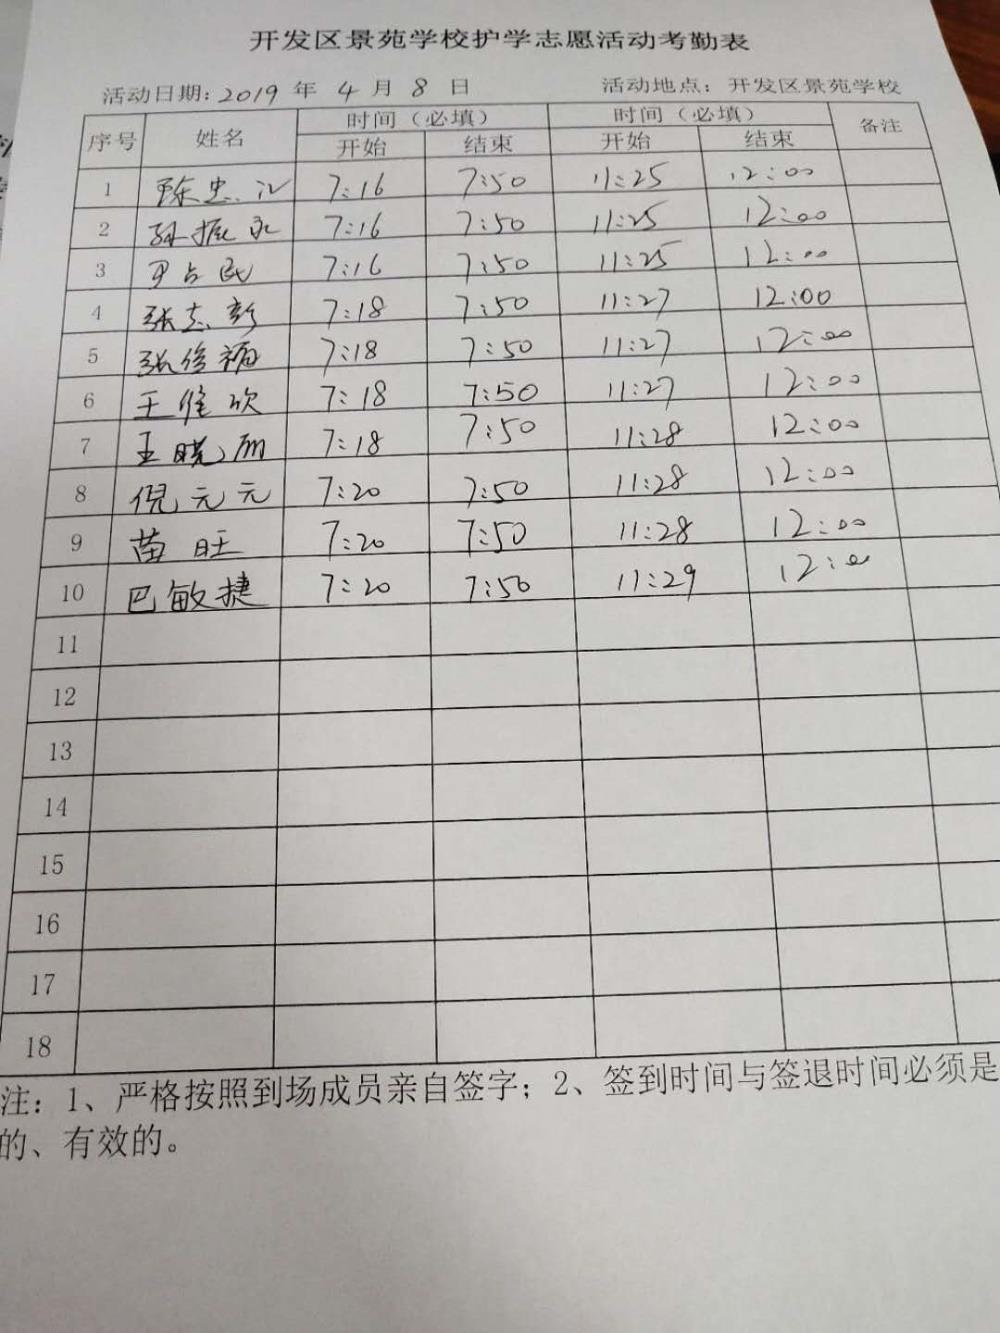 开发区景苑学校护学志愿活动考勤表
活动日期: 2019 年 4 月 8 日 活动地点: 开发区景苑学校
序号 姓名 时间（必填） 时间（必填） 备注
开始 结束 开始 结束
1 陈忠 7:16 7:50 11:25 12:00
2 孙振永 7:16 7:50 11:25 12:00
3 尹占民 7:16 7:50 11:25 12:00
4 张志彭 7:18 7:50 11:27 12:00
5 张俊福 7:18 7:50 11:27 12:00
6 王维欣 7:18 7:50 11:27 12:00
7 王晓丽 7:18 7:50 11:28 12:00
8 倪元元 7:20 7:50 11:28 12:00
9 苗旺 7:20 7:50 11:28 12:00
10 巴敏捷 7:20 7:50 11:29 12:0
11
12
13
14
15
16
17
18
注: 1、严格按照到场成员亲自签字; 2、签到时间与签退时间必须是
的、有效的。